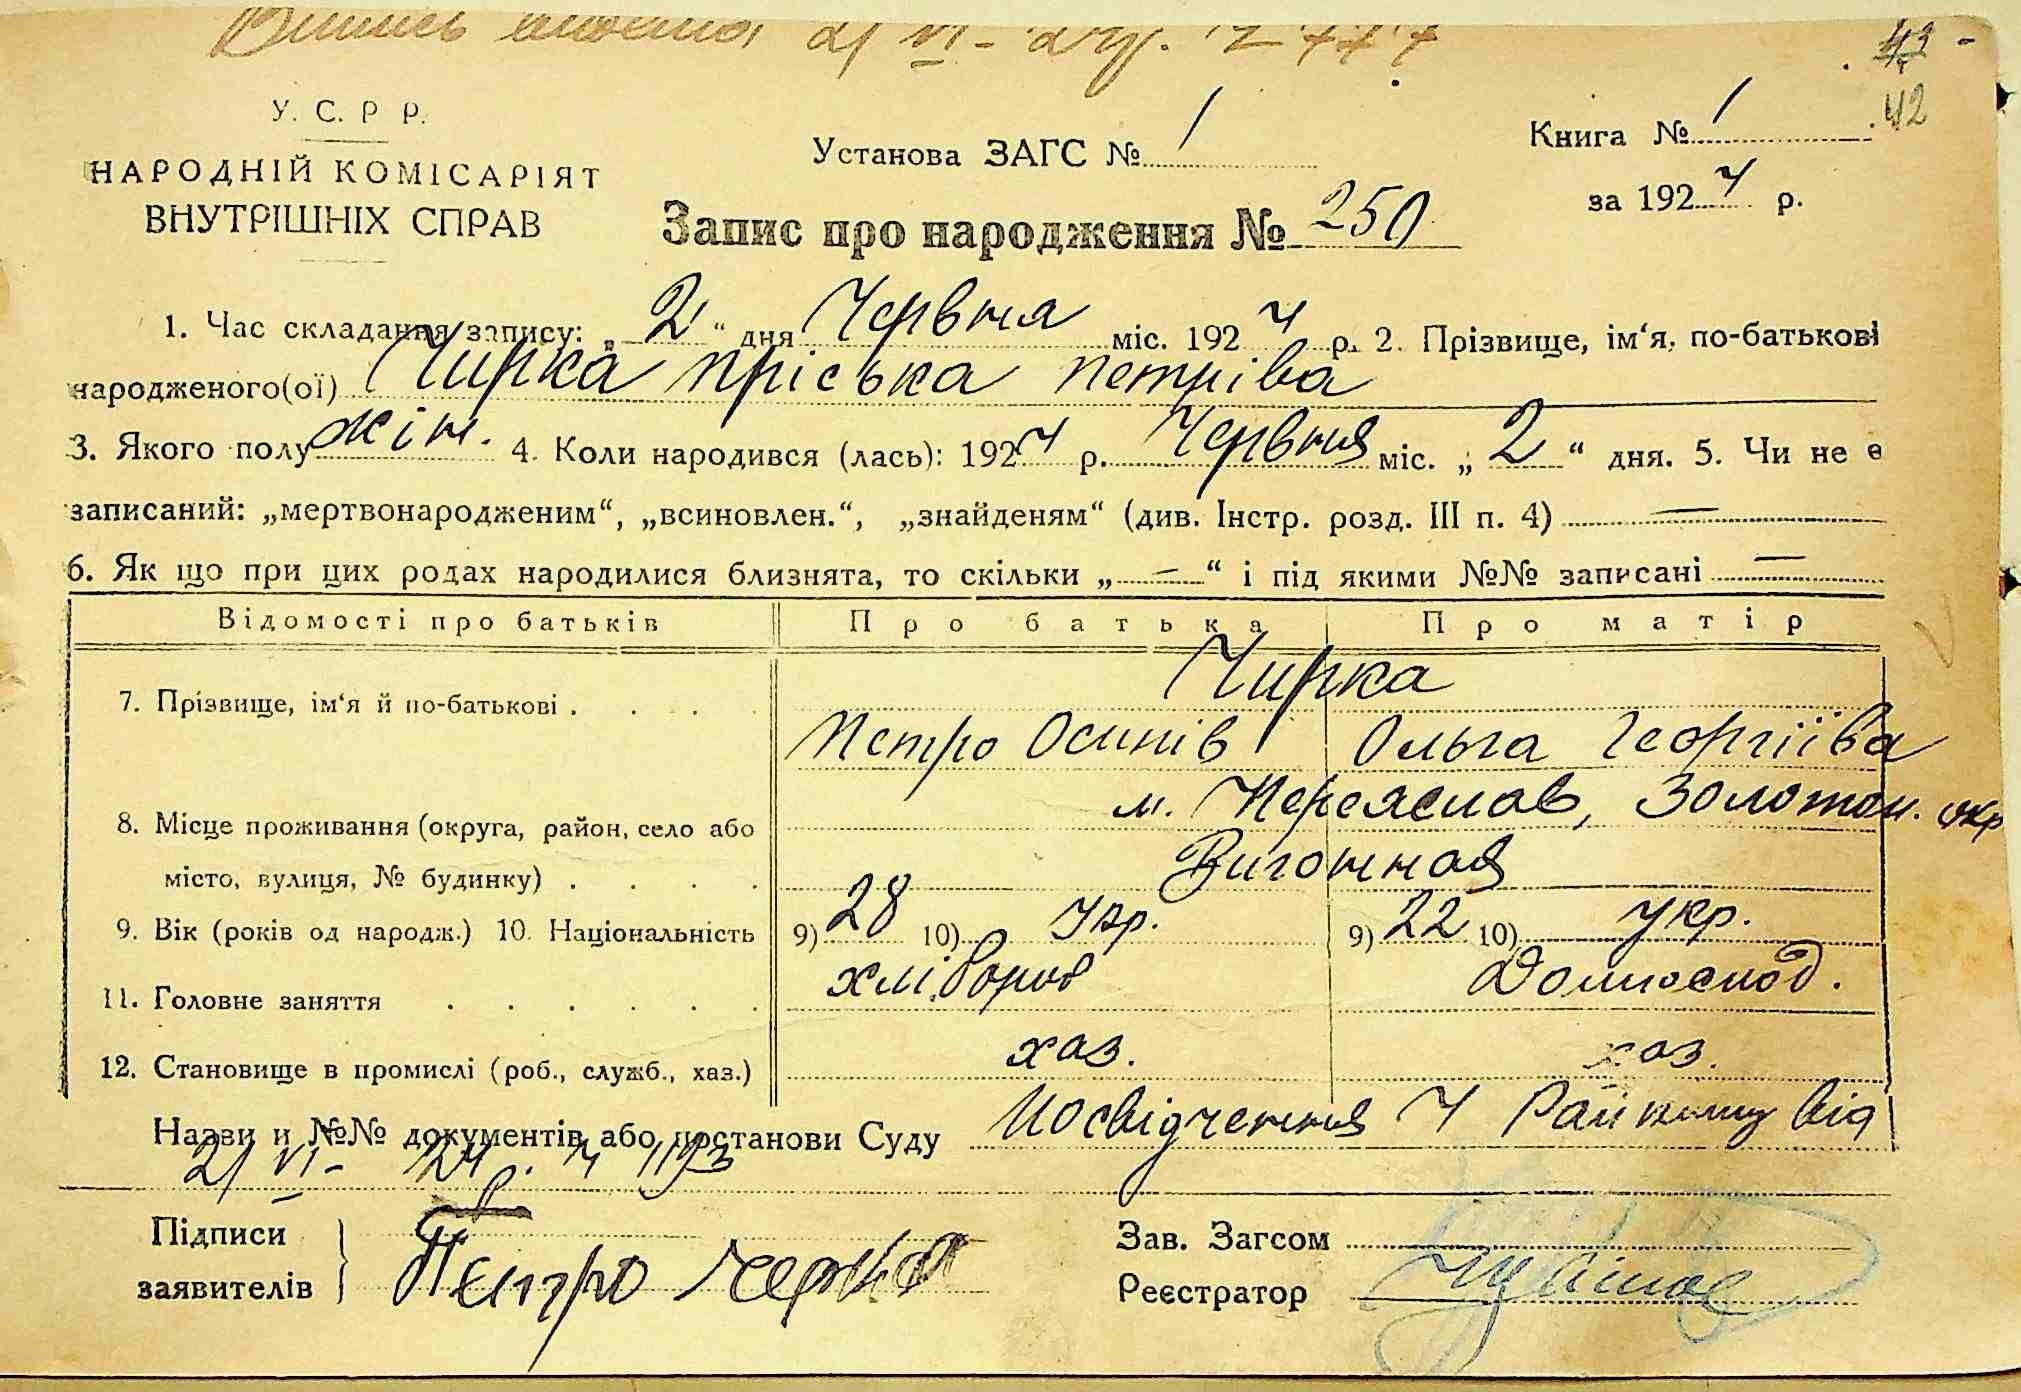 43 -
42
У. С. Р Р.
НАРОДНІЙ КОМІСАРІЯТ
ВНУТРІШНІХ СПРАВ
Установа ЗАГС № 1
Книга № 1
за 1924 р.
Запис про народження № 250
1. Час складання запису: „2“ дня Червня міс. 1924 р. 2. Прізвище, ім‘я, по-батькові
народженого(ої) Чирка Пріська Петріва
3. Якого полу жін. 4. Коли народився (лась): 1924 р. Червня міс. „2“ дня. 5. Чи не є
записаний: „мертвонародженим“, „всиновлен.“, „знайденям“ (див. Інстр. розд. III п. 4) —
6. Як що при цих родах народилися близнята, то скільки „—“ і під якими №№ записані —
Відомості про батьків Про батька Про матір
Чирка
7. Прізвище, ім‘я й по-батькові . . . .
Петро Осипів Ольга Георгіїва
м. Переяслав, Золотон. окр
8. Місце проживання (округа, район, село або
місто, вулиця, № будинку) . . . .
9. Вік (років од народж.) 10. Національність 9) 28 10) Укр. 9) 22 10) Укр.
11. Головне заняття . . . . . . хлібороб Домгоспод.
12. Становище в промислі (роб., служб., хаз.) хаз. хаз.
Назви и №№ документів або постанови Суду Посвідчення Ч Райкому від
21 VI- 24 р. Ч
Підписи
заявителів
Петро
Зав. Загсом
Реєстратор